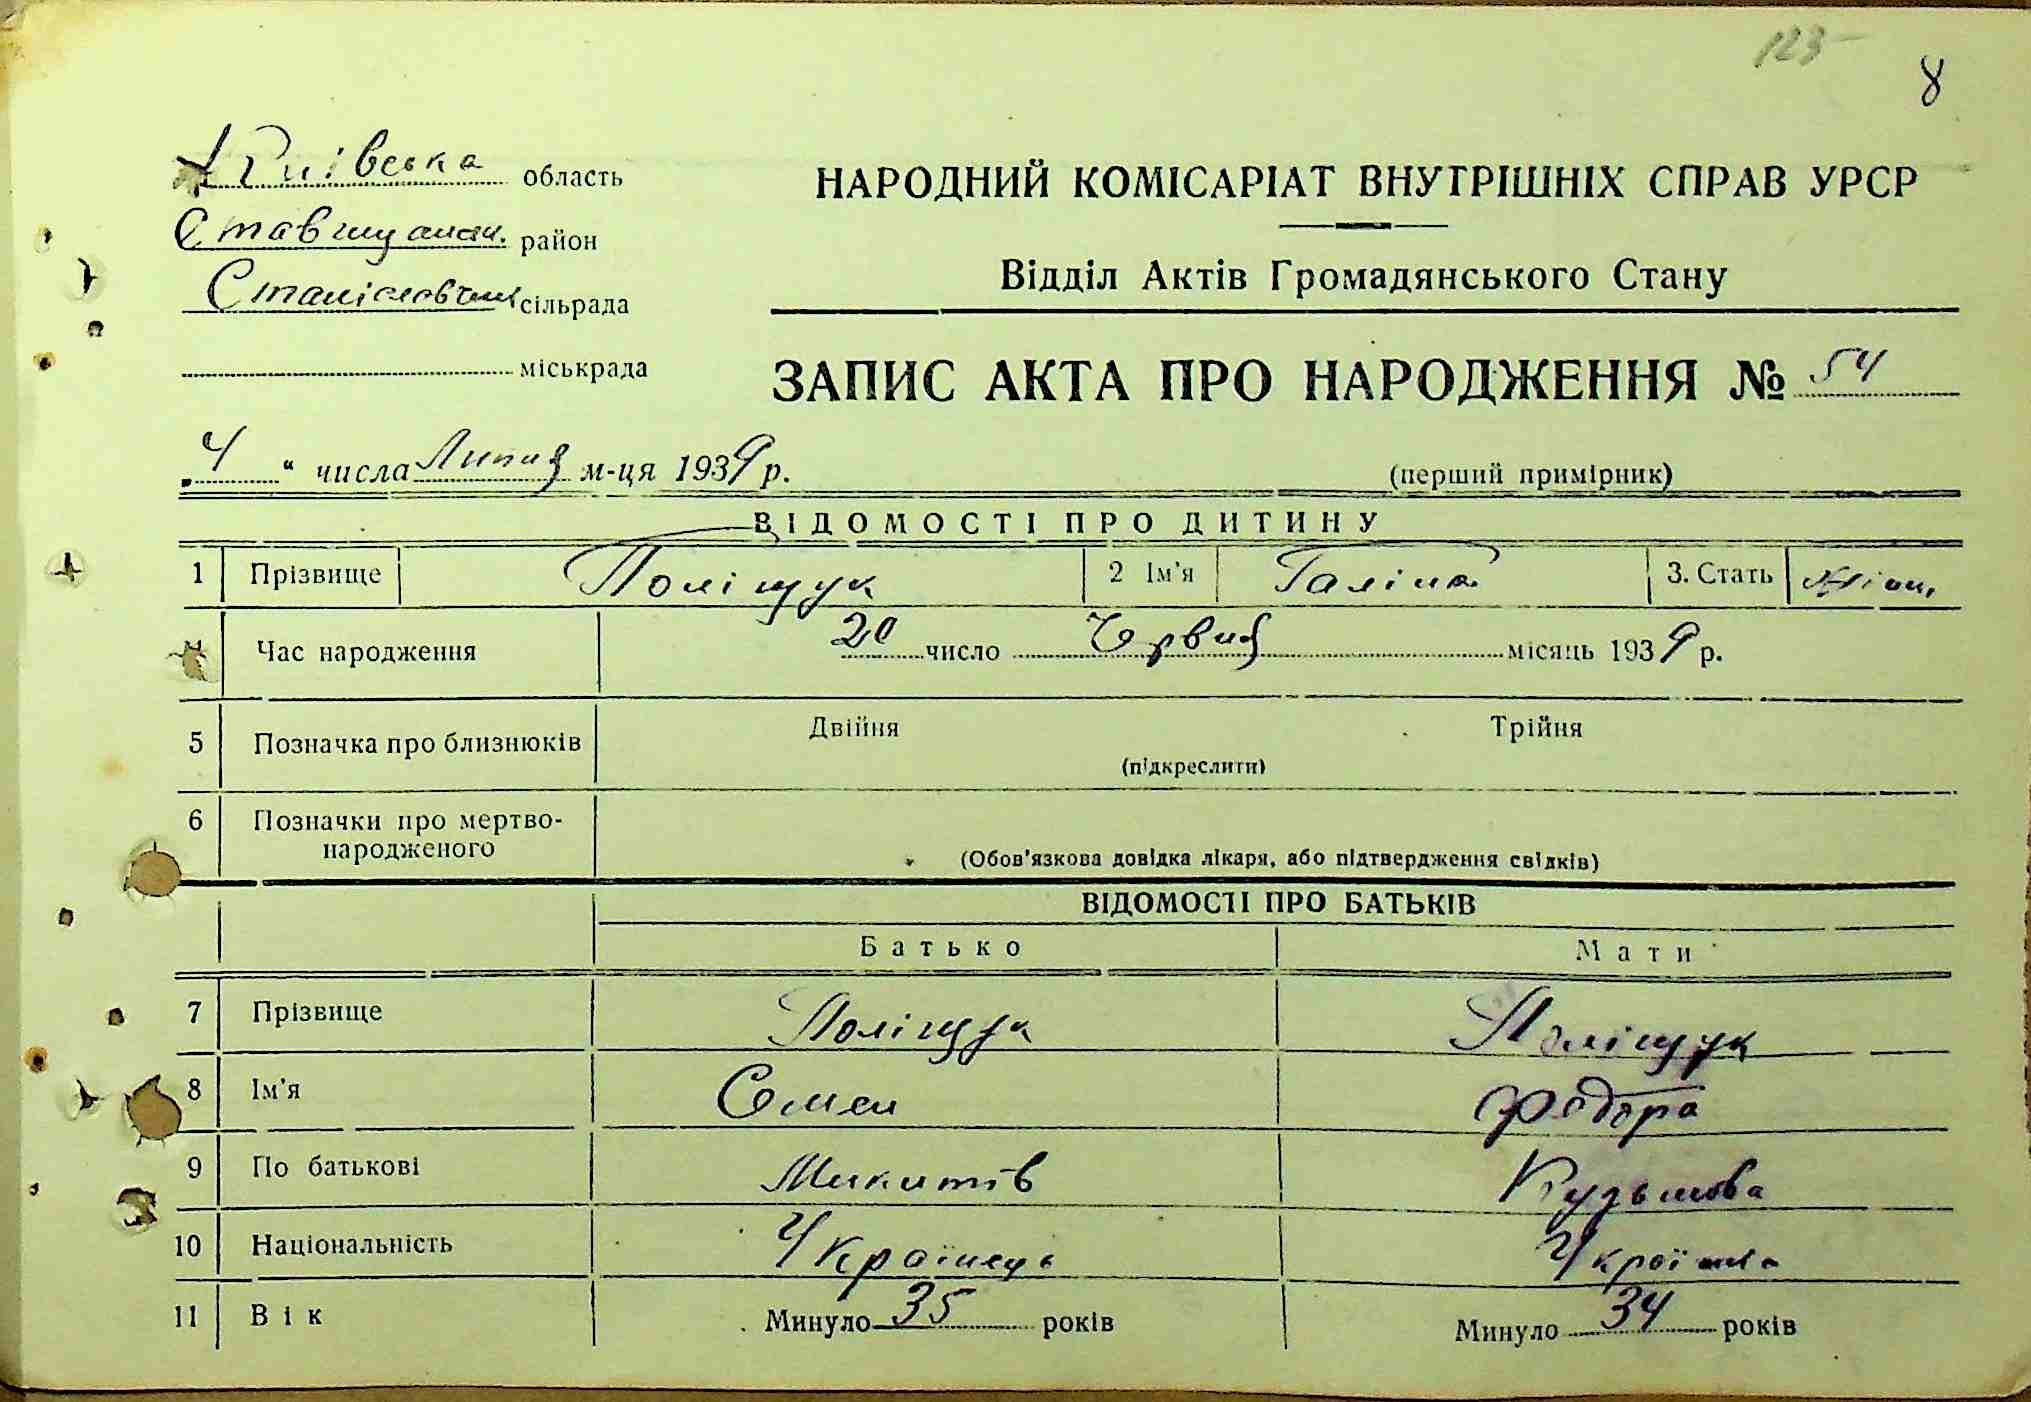 123
8
Київська область
НАРОДНИЙ КОМІСАРІАТ ВНУТРІШНІХ СПРАВ УРСР
Ставищанськ. район
Відділ Актів Громадянського Стану
сільрада
міськрада
ЗАПИС АКТА ПРО НАРОДЖЕННЯ № 54
„4“ числа Липня м-ця 1939 р.
(перший примірник)
ВІДОМОСТІ ПРО ДИТИНУ
1 Прізвище Поліщук 2 Ім'я Галіна 3. Стать
4 Час народження 20 число Червня місяць 1939 р.
5 Позначка про близнюків Двійня Трійня
(підкреслити)
6 Позначки про мертво-
народженого
(Обов'язкова довідка лікаря, або підтвердження свідків)
ВІДОМОСТІ ПРО БАТЬКІВ
Батько Мати
7 Прізвище Поліщук Поліщук
8 Ім'я Семен Федора
9 По батькові Микитів Кузьмова
10 Національність Українець Українка
11 Вік Минуло 35 років Минуло 34 років